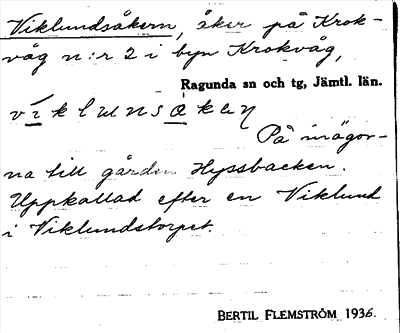 Viklundsåkern, åker på Krok-
våg n:r 2 i byn Krokvåg,
Ragunda sn och tg, Jämtl. län.
På inägor-
na till gården Hyssbacken.
Uppkallad efter en Viklund
i Viklundstorpet.
BERTIL FLEMSTRÖM 1936.